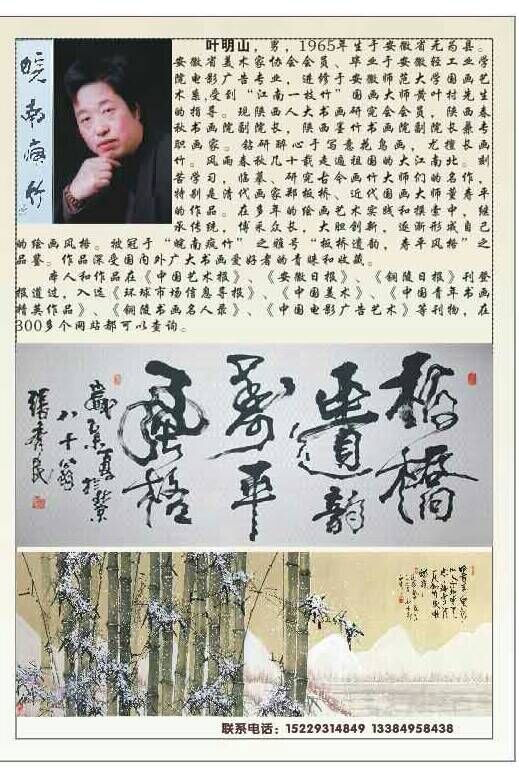 皖南疯竹
叶明山，男，1965年生于安徽省无为县。
安徽省美术家协会会员、毕业于安徽轻工业学
院电影广告专业，进修于安徽师范大学国画艺
术系，受到“江南一枝竹”国画大师黄叶村先生
的指导。现陕西人大书画研究会会员，陕西春
秋书画院副院长，陕西墨竹书画院副院长兼专
职画家。钻研醉心于写意花鸟画，尤擅长画
竹。风雨春秋几十载走遍祖国的大江南北。刻
苦学习，临摹、研究古今画竹大师们的名作，
特别是清代画家郑板桥、近代国画大师董寿平
的作品。在多年的绘画艺术实践和摸索中，继
承传统，博采众长，大胆创新，逐渐形成自己
的绘画风格。被冠于“皖南疯竹”之雅号“板桥遗韵，寿平风格”之
品鉴。作品深受国内外广大书画爱好者的青睐和收藏。
本人和作品在《中国艺术报》、《安徽日报》、《铜陵日报》刊登
报道过，入选《环球市场信息导报》、《中国美术》、《中国青年书画
精英作品》、《铜陵书画名人录》、《中国电影广告艺术》等刊物，在
300多个网站都可以查询。
板桥
遗韵
寿平
风格
八十翁
联系电话：15229314849 13384958438